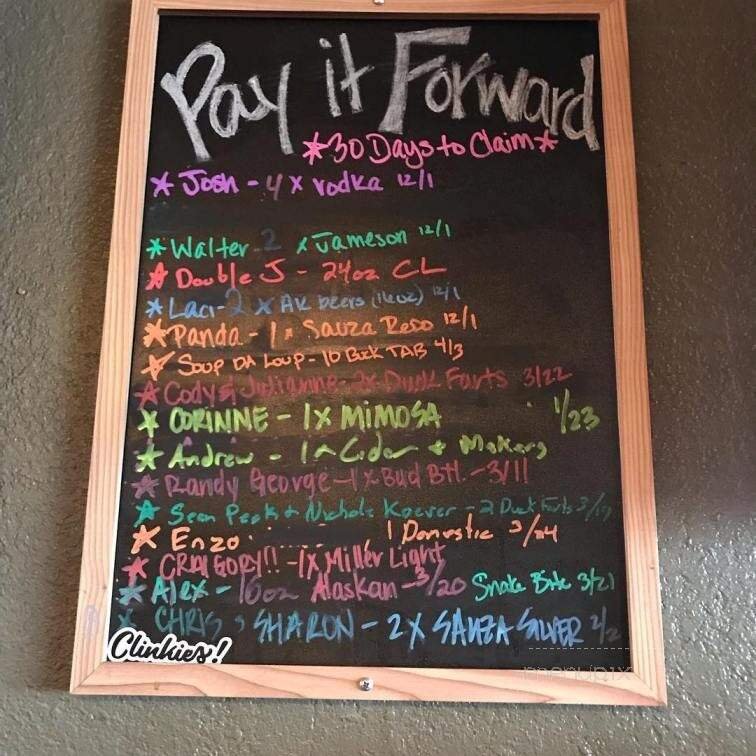 Pay it Forward
*30 Days to Claim*
* Josh - 4 x vodka 12/1
* Walter 2 x Jameson 12/1
* Double J - 24oz CL
* Laci - 2 x AK beers (16oz) 12/1
* Panda - 1 x Sauza Repo 12/1
* SOUP DA LOUP - 10 BUCK TAB 4/3
* Cody & Julianne - 2x Duck Farts 3/22
* CORINNE - 1X MIMOSA 1/23
* Andrew - 1 Cider + Makers
* Randy George - 1 x Bud Btl. - 3/11
* Sean Peak + Nichole Koever - 2 Duck Farts 3/19
* Enzo ......... 1 Domestic 3/24
* CRAIGORY!! - 1X Miller Light
* Alex - 16oz Alaskan - 3/20 Snake Bite 3/21
* CHRIS & SHARON - 2 X SAUZA SILVER 2/2
Clinkies!
menupix